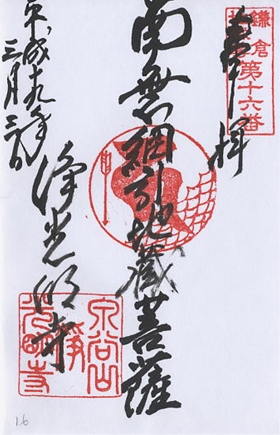 鎌倉
第十六番
奉拝
南無網引地蔵菩薩
平成十九年
三月三日
浄光明寺
泉谷山
淨
光明寺
16